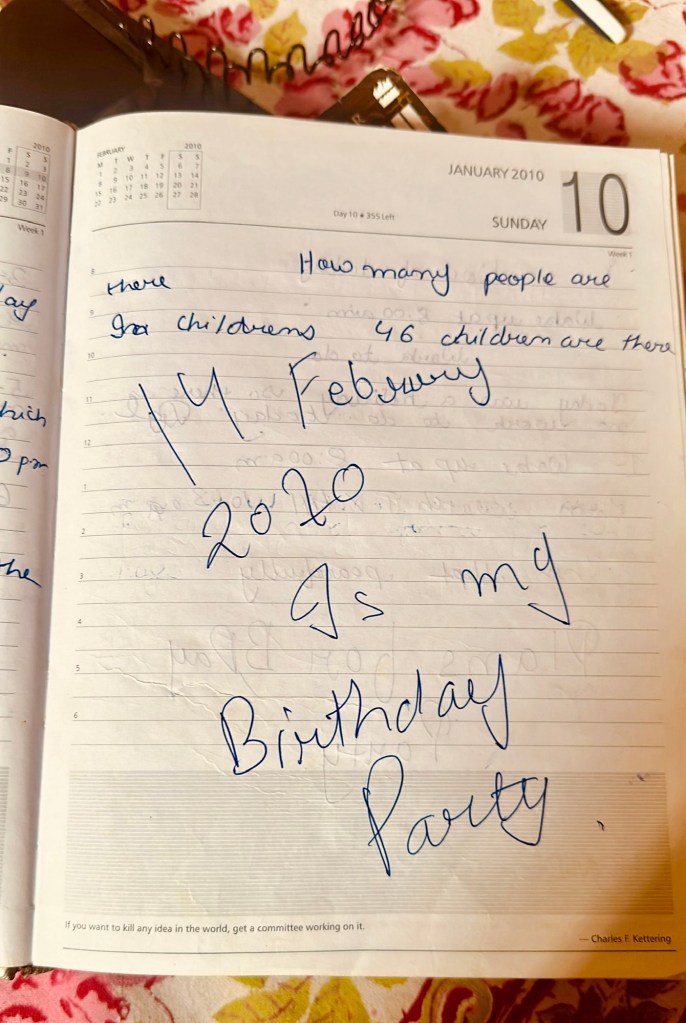 2010
S S
2 3
9 10
15 16 17
22 23 24
29 30 31
Week 1
ay
hich
pm
the
FEBRUARY 2010
M T W T F S S
1 2 3 4 5 6 7
8 9 10 11 12 13 14
15 16 17 18 19 20 21
22 23 24 25 26 27 28
JANUARY 2010 10
Day 10 ★ 355 Left
SUNDAY
Week 1
8
How many people are
there
9
childrens 46 children are there
10
14 Februrary
11
12
1
2020
2
Is my
3
4
5
Birthday
6
Party.
If you want to kill any idea in the world, get a committee working on it.
— Charles F. Kettering